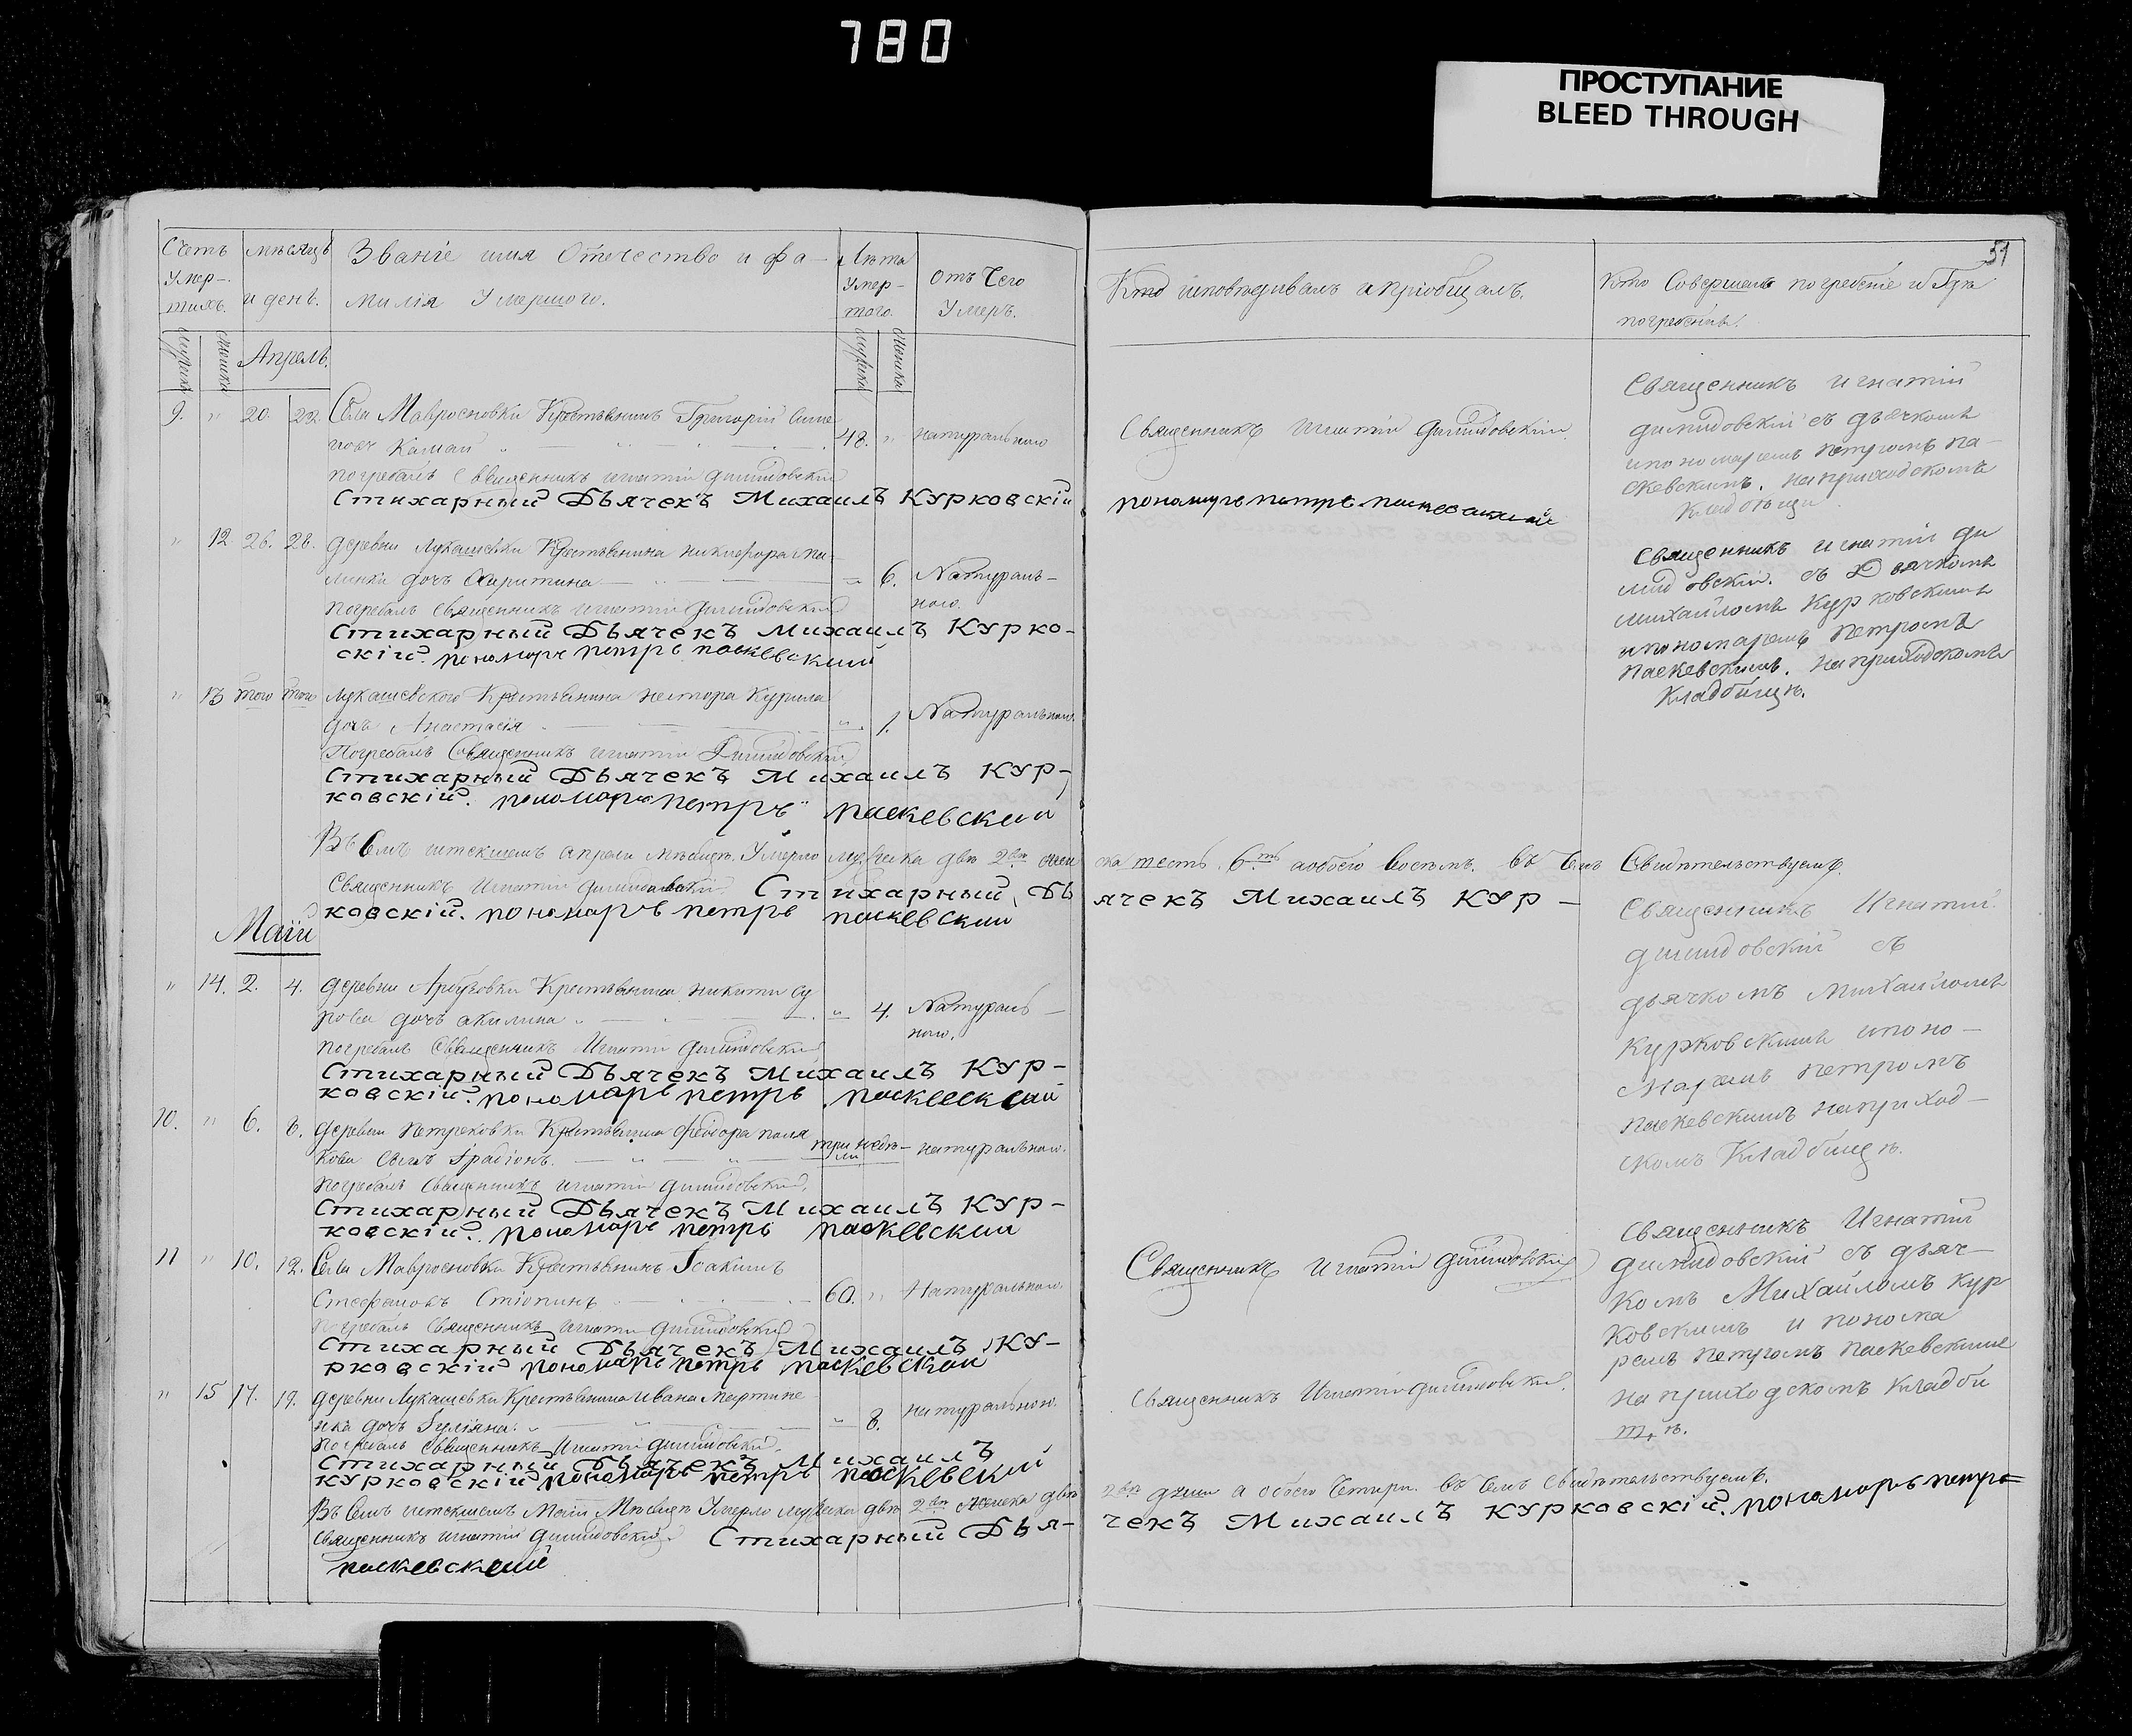 780
ПРОСТУПАНИЕ
BLEED THROUGH
51
Счетъ Умер-тихъ.
мѣсяцъ и день.
Званіе имя Отечество и фа-
милія Умершого.
Лѣта Умер-шого.
Отъ Чего Умеръ.
Кто исповѣдивалъ и пріобщалъ.
Кто Совершалъ погребеніе и Гдѣ
погребены.
Апрель.
9. " 20. 22. Села Мавросновки Крестьянинъ Григорій
48. " натурально
погребалъ Священникъ игнатій
Стихарный Дьячекъ Михаилъ Курковскій
Священникъ Игнатій
пономарь петръ паскевский
Священникъ игнатій
съ дьячкомъ
и пономаремъ петромъ па-
скевскимъ. на приходскомъ
кладбищи
" 12. 26. 28. деревни Лукашевки Крестьянина никифора
дочь
" 6. Натураль-
ною.
погребалъ Священникъ игнатій
Стихарный Дьячекъ Михаилъ Курко-
скій. пономарь петръ паскевский
Священникъ игнатій
съ Дьячкомъ
михайломъ Курковскимъ
и пономаремъ петромъ
паскевскимъ. на приходскомъ
Кладбищѣ.
" 13 того того Лукашевского Крестьянина нестора Курила
дочь Анастасія
" 1. Натурально.
Погребалъ Священникъ игнатій
Стихарный Дьячекъ Михаилъ Кур-
ковскій. пономарь петръ паскевский
Въ семъ истекшемъ апрели мѣсяцѣ. Умерло мужеска двѣ 2ѣ жен
ска шесть 6ть а обоего восемъ. въ чемъ Свидѣтельствуемъ.
Священникъ Игнатій
Стихарный Дь
ячекъ Михаилъ Кур-
ковскій. пономарь петръ паскевский
Маій
" 14. 2. 4. деревни Арбузовки Крестьянина никити су
рова дочь акилина
" 4. Натураль-
ною.
погребалъ Священникъ Игнатій
Стихарный Дьячекъ Михаилъ Кур-
ковскій. пономарь петръ паскевский
Священникъ Игнатій
съ
дьячкомъ Михайломъ
Курковскимъ и поно-
маремъ петромъ
паскевскимъ на приход-
скомъ Кладбищѣ.
10. " 6. 8. деревни Петраковки Крестьянина Феодора поля
кова сынъ
три недѣ-
ли
натурально.
погребалъ Священникъ игнатій
Стихарный Дьячекъ Михаилъ Кур-
ковскій. пономарь петръ паскевский
11 " 10. 12. Села Мавросновки Крестьянинъ Іоакимъ
Стефановъ Стіопинъ
60. " Натурально.
погребалъ Священникъ игнатій
Стихарный Дьячекъ Михаилъ Ку-
рковскій пономарь петръ паскевский
Священникъ Игнатій
Священникъ Игнатій
съ дьяч-
комъ Михайломъ Кур
ковскимъ и понома
ремъ петромъ паскевскимъ
на приходскомъ кладби
щѣ.
" 15 17. 19. деревни Лукашевки Крестьянина Ивана Мартине
нка дочь Іуліяна.
" 8. натурально.
погребалъ Священникъ Игнатій
Стихарный Дьячекъ Михаилъ
Курковскій пономарь петръ паскевский
Священникъ Игнатій
Въ семъ истекшемъ Маіи Мѣсяцѣ Умерло мужеска двѣ 2ѣ женска двѣ
2ѣ души а обоего Четыри. въ чемъ Свидѣтельствуемъ.
Священникъ игнатій
Стихарный Дья-
чекъ Михаилъ Курковскій. пономарь петръ
паскевский